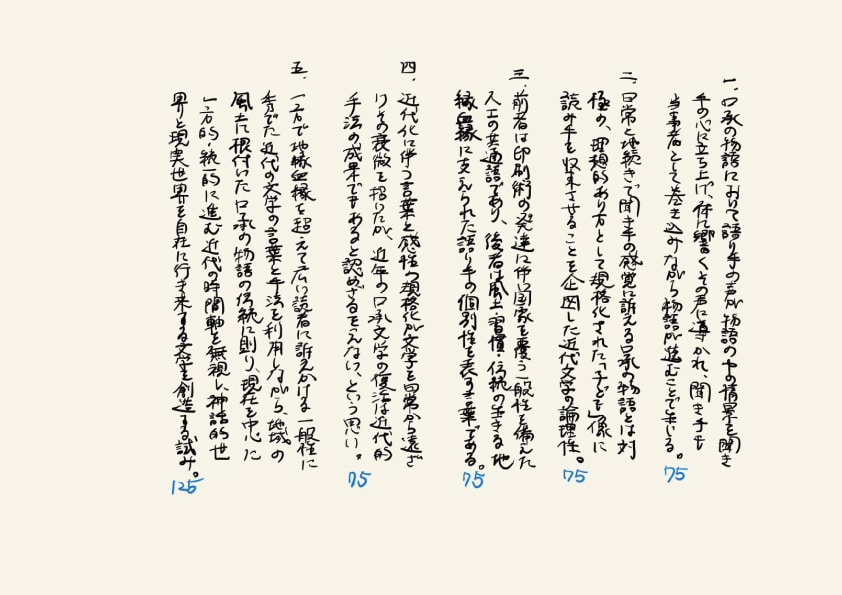 一、口承の物語において語り手の声が物語の中の情景を聞き
手の心に立ち上げ、体に響くその声に導かれ、聞き手も
当事者として巻き込みながら物語が進むことで生まれる。
75
二、日常と地続きで聞き手の感覚に訴える口承の物語とは対
極の、理想的あり方として規格化された「子ども」像に
読み手を収束させることを企図した近代文学の論理性。
75
三、前者は印刷術の発達に伴い国家を覆う一般性を備えた
人工の共通語であり、後者は風土・習慣・伝統の生きる地
縁血縁に支えられた語り手の個別性を表す言葉である。
75
四、近代化に伴う言葉と感性の規格化が文学を日常から遠ざ
けその衰微を招いたが、近年の口承文学の復活は近代的
手法の成果でもあると認めざるをえない、という思い。
75
五、一方で地縁血縁を超えて広い読者に訴えかける一般性に
秀でた近代の文学の言葉と手法を利用しながら、地域の
風土に根付いた口承の物語の伝統に則り、現在を中心に
一方的・統一的に進む近代の時間軸を無視し、神話的世
界と現実世界を自在に行き来する文学を創造する試み。
125